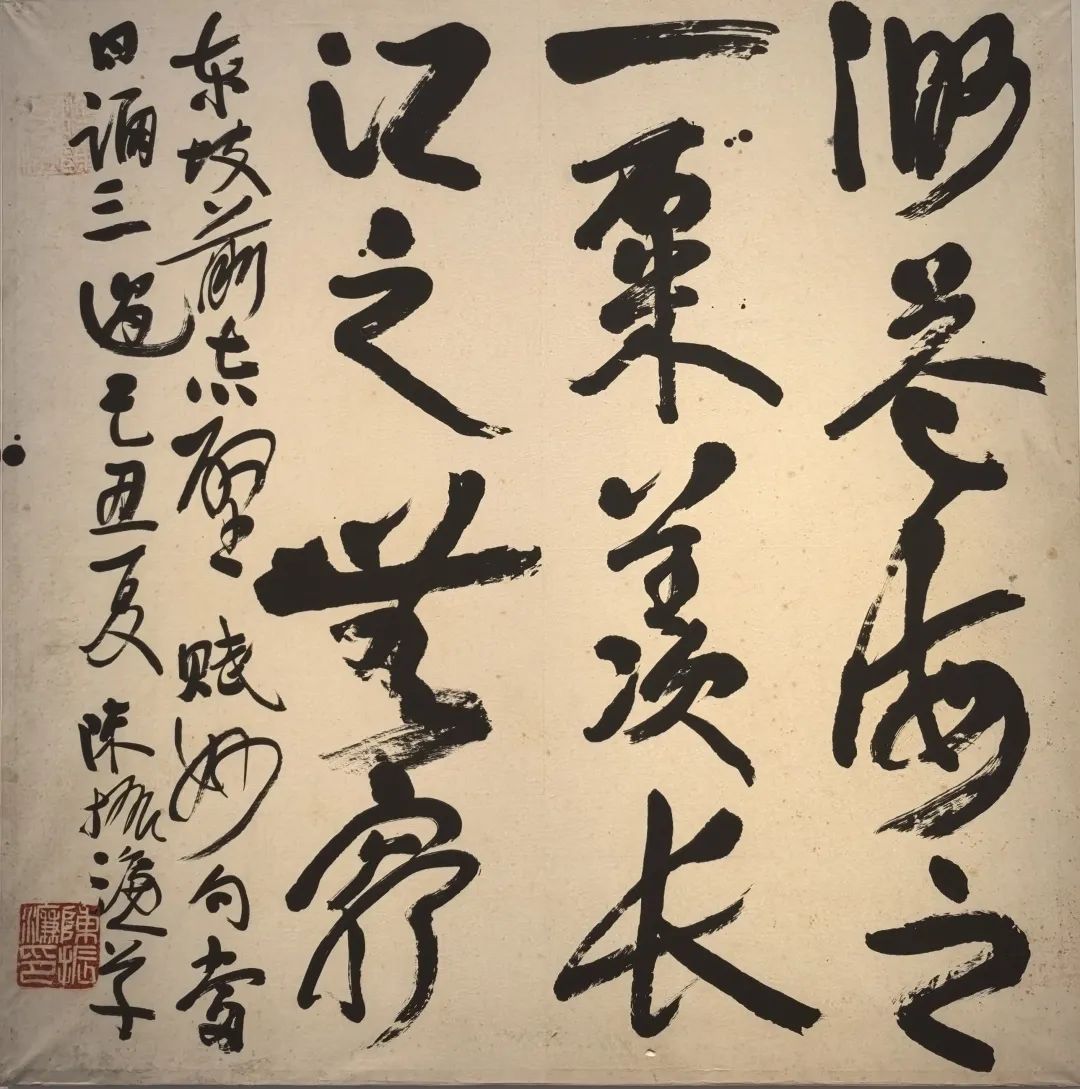 渺苍海之
一粟羡长
江之無穷
东坡前赤壁赋妙句當
日诵三過己丑夏陈振濂草
陳振濂印